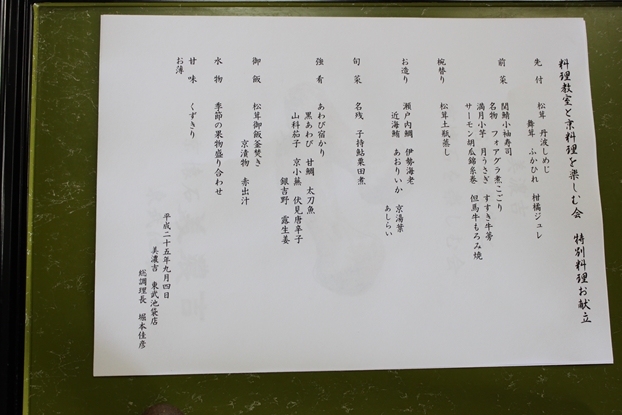 料理教室と京料理を楽しむ会 特別料理お献立
先付 松茸 丹波しめじ
舞茸 ふかひれ 柑橘ジュレ
前菜 関鯖小袖寿司
名物 フォアグラ煮こごり
満月小芋 月うさぎ すすき牛蒡
サーモン胡瓜錦糸巻 但馬牛もろみ焼
椀替り 松茸土瓶蒸し
お造り 瀬戸内鯛 伊勢海老
近海鮪 あおりいか 京湯葉
あしらい
旬菜 名残 子持鮎粟田煮
強肴 あわび宿かり
黒あわび 甘鯛 太刀魚
山科茄子 京小蕪 伏見唐辛子
銀吉野 露生姜
御飯 松茸御飯釜焚き
京漬物 赤出汁
水物 季節の果物盛り合わせ
甘味 くずきり
お薄
平成二十五年九月四日
美濃吉 東武池袋店
総調理長 堀本佳彦